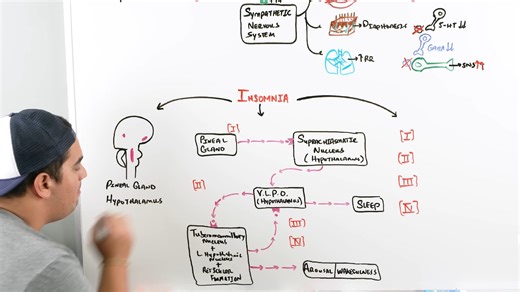 SYMPATHETIC
NERVOUS
SYSTEM
→ DIAPHORESIS
→ ↑RR
5-HT ↓↓
GABA ↓↓
→ SNS ↑↑
INSOMNIA
[I]
PINEAL
GLAND
SUPRACHIASMATIC
NUCLEUS
(HYPOTHALAMUS)
[I]
[II]
[III]
[IV]
PINEAL GLAND
HYPOTHALAMUS
[II]
V.L.P.O.
(HYPOTHALAMUS)
SLEEP
[III]
[IV]
TUBEROMAMMILLARY
NUCLEUS
+
L. HYPOTHALAMIC
NUCLEUS
+
RETICULAR
FORMATION
AROUSAL/WAKEFULNESS